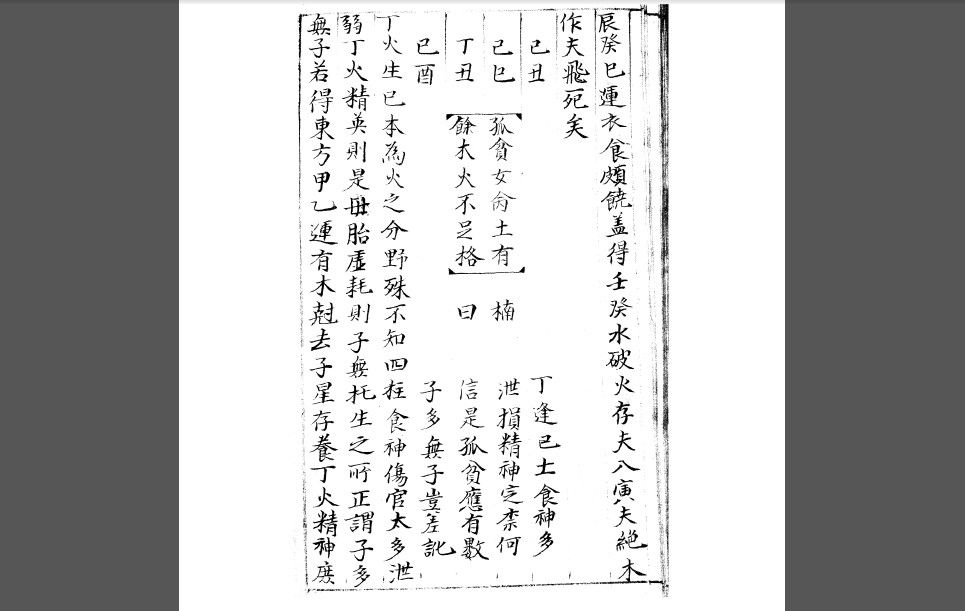 辰癸巳運衣食頗饒盖得壬癸水破火存夫入寅夫絶木
作夫飛死矣
己丑
己巳
丁丑
己酉
孤貧女命土有
餘木火不足格
楠
曰
丁逢己土食神多
泄損精神定柰何
信是孤貧應有數
子多無子豈差訛
丁火生巳本為火之分野殊不知四柱食神傷官太多泄
弱丁火精英則是毋胎虛耗則子無托生之所正謂子多
無子若得東方甲乙運有木尅去子星存養丁火精神庶